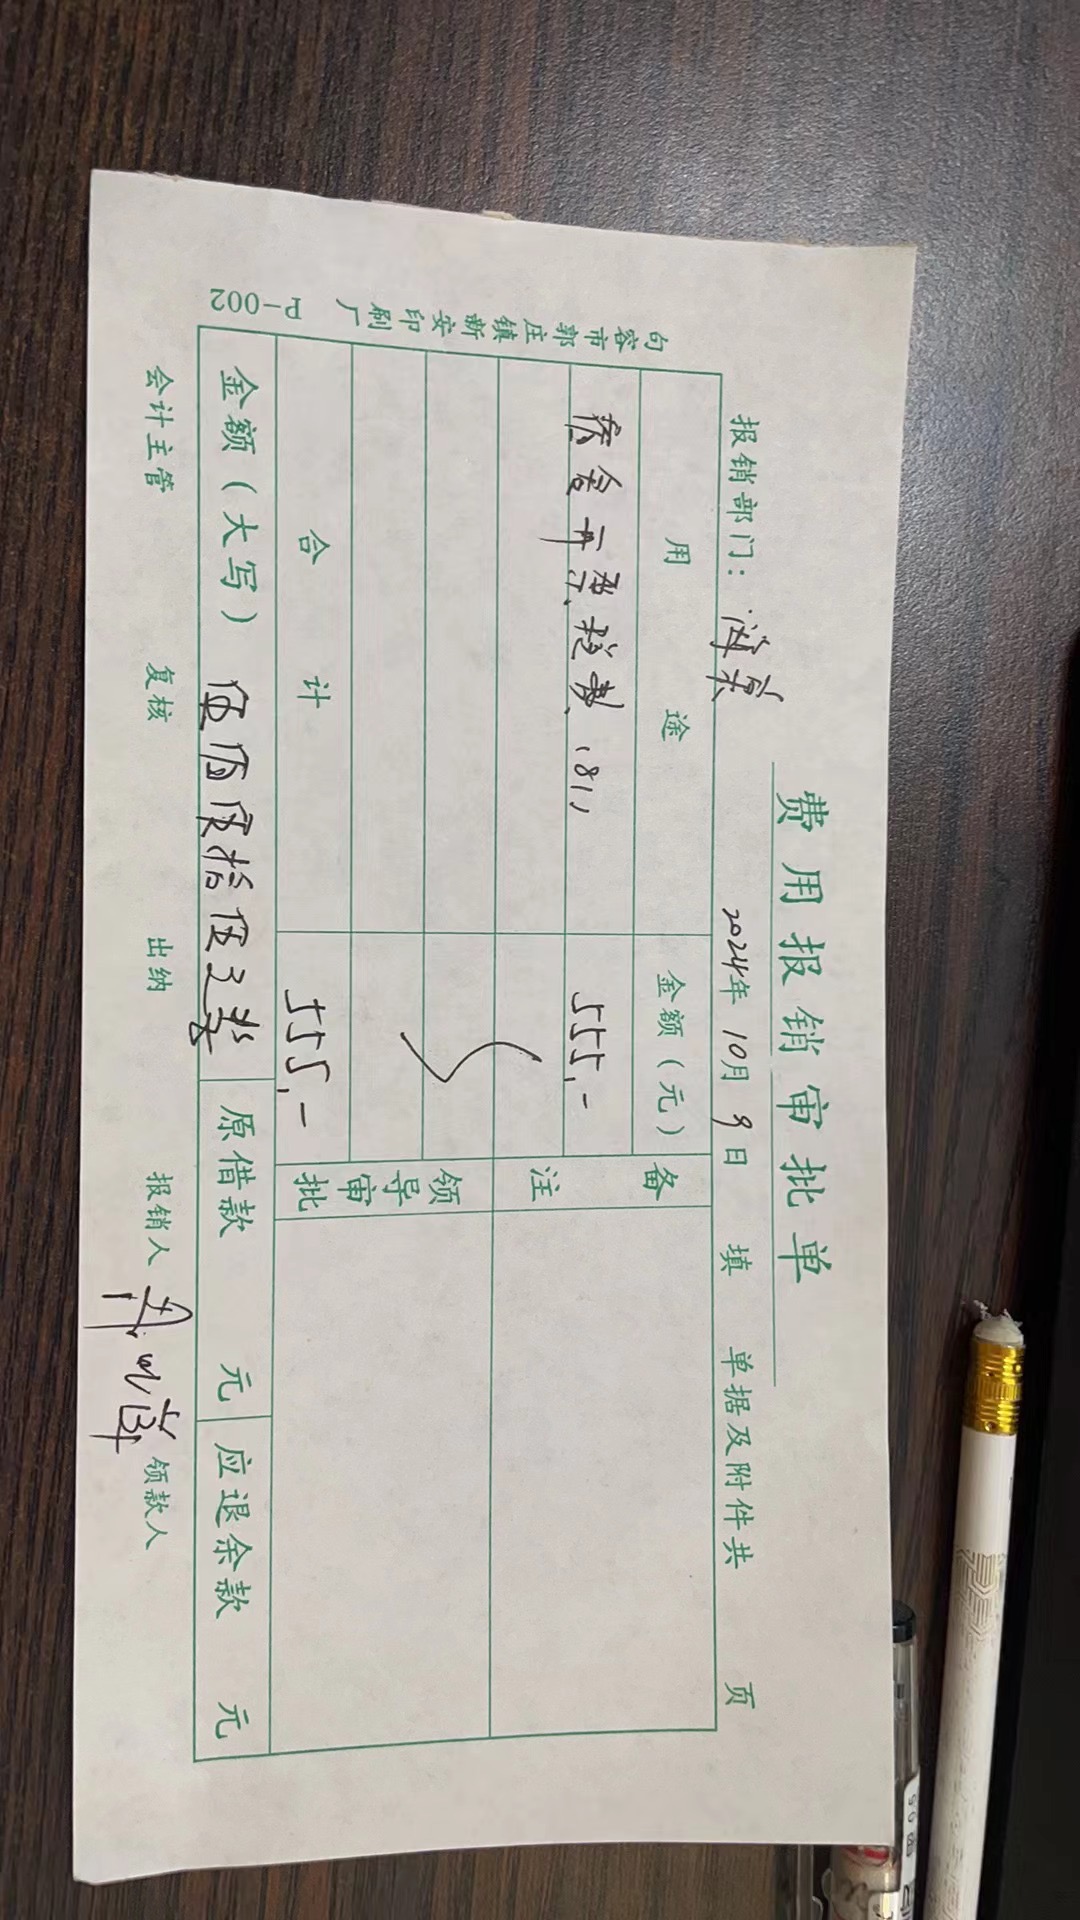 费用报销审批单
报销部门： 2024年 10月 9日 填 单据及附件共 页
用途 金额（元） 备注
宿舍 费（81） 555.-
领导审批
合计 555.-
金额（大写） 伍佰伍拾伍元整 原借款 元 应退余款 元
会计主管 复核 出纳 报销人 领款人
句容市郭庄镇新安印刷厂 P-002